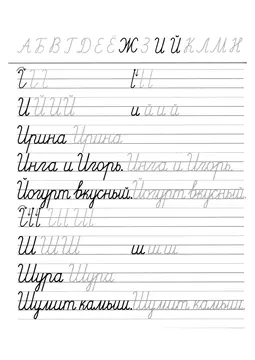 А Б В Г Д Е Ё Ж З И Й К Л М Н
И Й И Й и й и й
Ирина Ирина
Инга и Игорь. Инга и Игорь.
Йогурт вкусный. Йогурт вкусный.
Ш Ш Ш ш ш ш
Шура Шура
Шумит камыш. Шумит камыш.